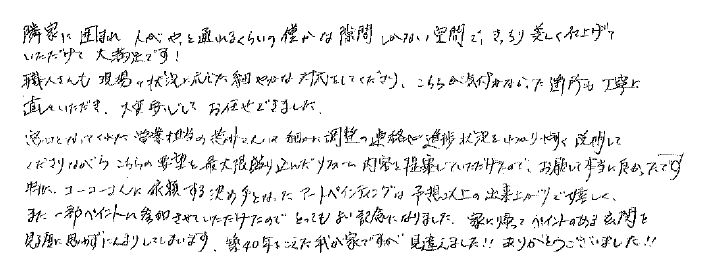 隣家に囲まれ 人がやっと通れるくらいの僅かな隙間しかない空間で、きっちり美しく仕上げて
いただけて大満足です!
職人さんも現場の状況に応じた細やかな対応をしてくださり、こちらが気付かなかった箇所も丁寧に
直していただき、大変安心してお任せできました。
窓口となってくれた営業担当の さんは細かに調整の連絡や進捗状況を分かり易く説明して
くださりながらこちらの要望を最大限盛り込んだリフォーム内容を提案していただけたので、お願いして本当に良かったです
特に、ユーコーさんに依頼する決め手となったアートペインティングは予想以上の出来上がりで嬉しく、
また一部ペイントに参加させていただけたのでとってもよい記念になりました。家に帰ってペイントのある玄関を
見る度に思わずにんまりしてしまいます。築40年をこえた我が家ですが見違えました!! ありがとうございました!!